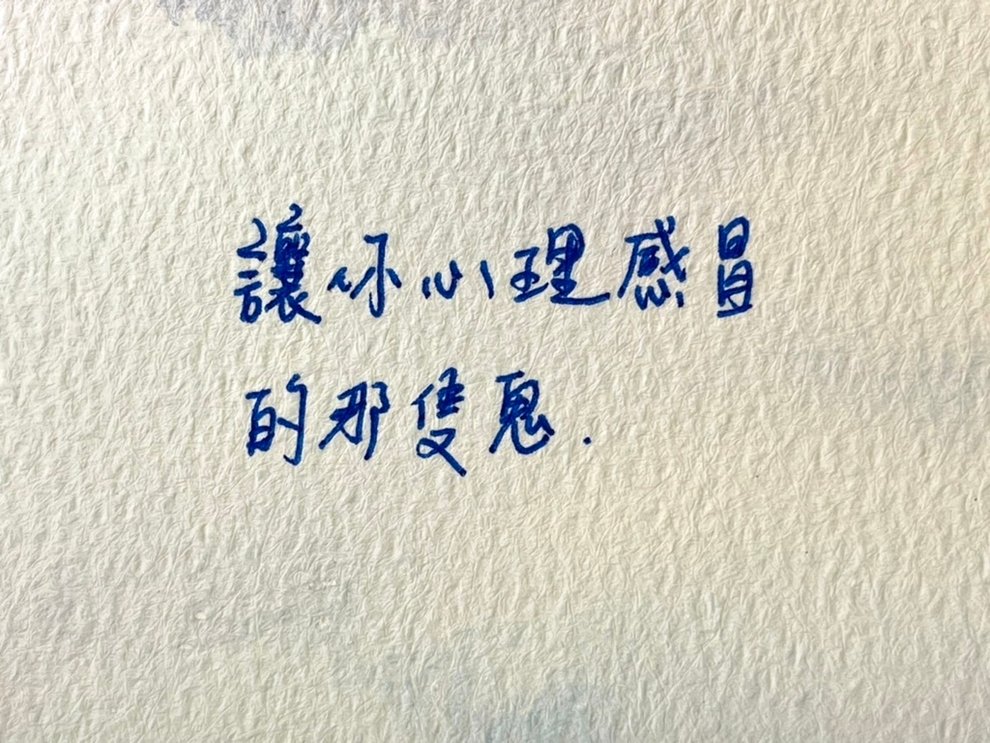 讓你心理感冒
的那隻鬼.